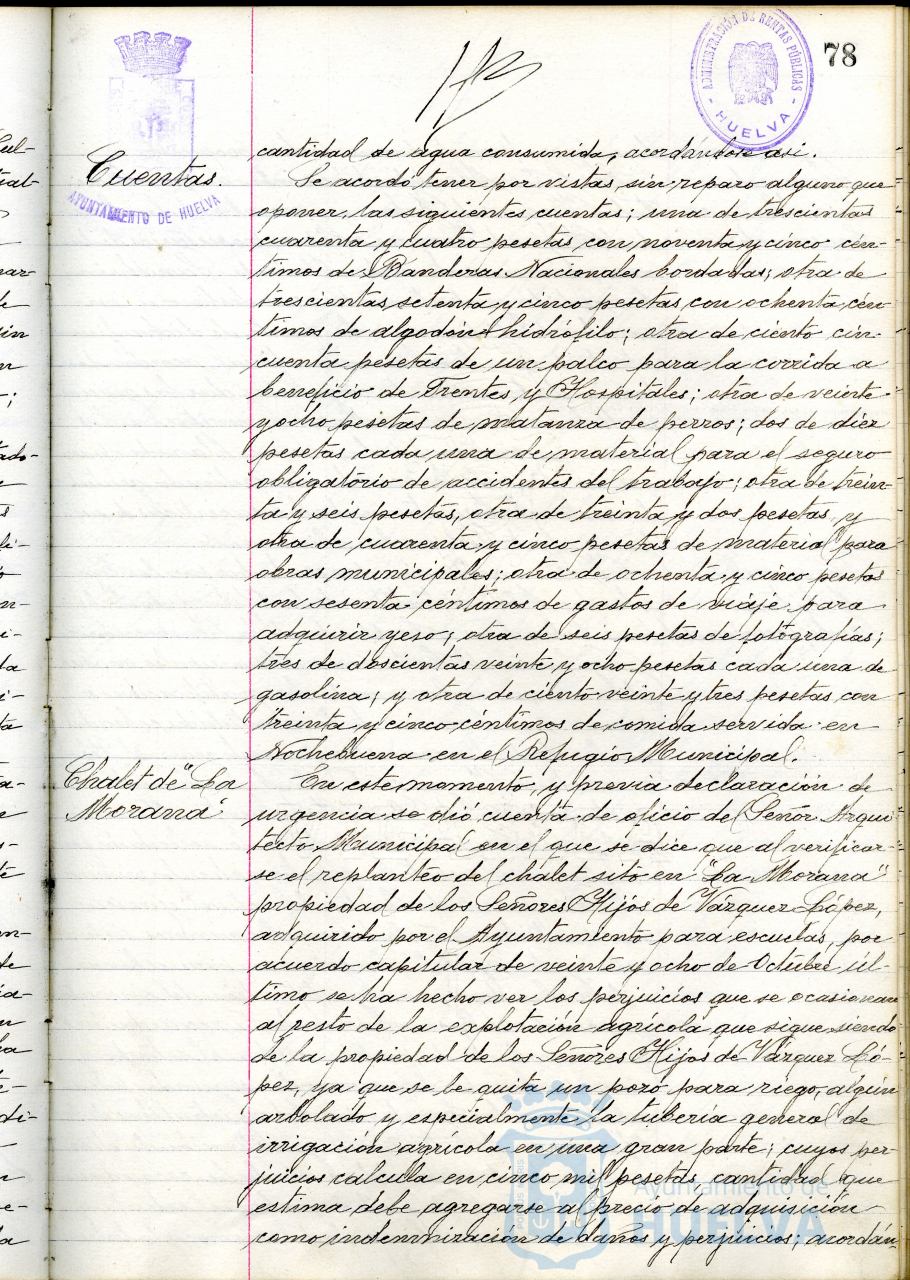 78
ADMINISTRACIÓN DE RENTAS PÚBLICAS
- HUELVA -
AYUNTAMIENTO DE HUELVA
cantidad de agua consumida, acordándose así.
Cuentas.
Se acordó tener por vistas, sin reparo alguno que
oponer, las siguientes cuentas; una de trescientas
cuarenta y cuatro pesetas con noventa y cinco cén-
timos de Banderas Nacionales bordadas; otra de
trescientas setenta y cinco pesetas con ochenta cén
timos de algodón hidrófilo; otra de ciento cin-
cuenta pesetas de un palco para la corrida a
beneficio de Frentes y Hospitales; otra de veinte
y ocho pesetas de matanza de perros; dos de diez
pesetas cada una de material para el seguro
obligatorio de accidentes del trabajo; otra de trein-
ta y seis pesetas, otra de treinta y dos pesetas, y
otra de cuarenta y cinco pesetas de material para
obras municipales; otra de ochenta y cinco pesetas
con sesenta céntimos de gastos de viaje para
adquirir yeso; otra de seis pesetas de fotografías;
tres de doscientas veinte y ocho pesetas cada una de
gasolina; y otra de ciento veinte y tres pesetas con
treinta y cinco céntimos de comida servida en
Nochebuena en el Refugio Municipal.
Chalet de "La
Morana"
En este momento, y previa declaración de
urgencia se dió cuenta de oficio del Señor Arqui
tecto Municipal en el que se dice que al verificar-
se el replanteo del chalet sito en "La Morana"
propiedad de los Señores Hijos de Vázquez López,
adquirido por el Ayuntamiento para escuelas, por
acuerdo capitular de veinte y ocho de Octubre úl-
timo se ha hecho ver los perjuicios que se ocasionan
al resto de la explotación agrícola que sigue siendo
de la propiedad de los Señores Hijos de Vázquez Ló-
pez, ya que se le quita un pozo para riego, algún
arbolado y especialmente la tubería general de
irrigación agrícola en una gran parte; cuyos per-
juicios calcula en cinco mil pesetas, cantidad que
estima debe agregarse al precio de adquisición
como indemnización de daños y perjuicios; acordán
Ayuntamiento de
HUELVA